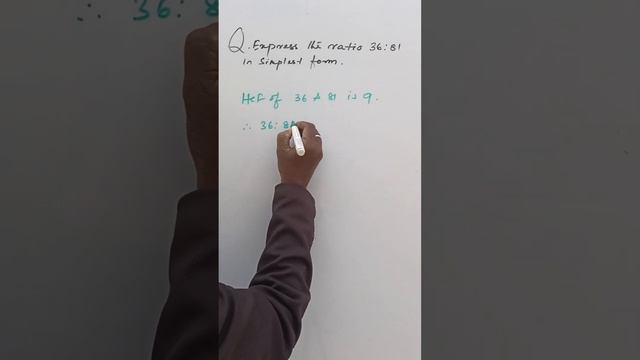 Q. Express the ratio 36:81
in simplest form.
HCF of 36 & 81 is 9.
∴ 36:81